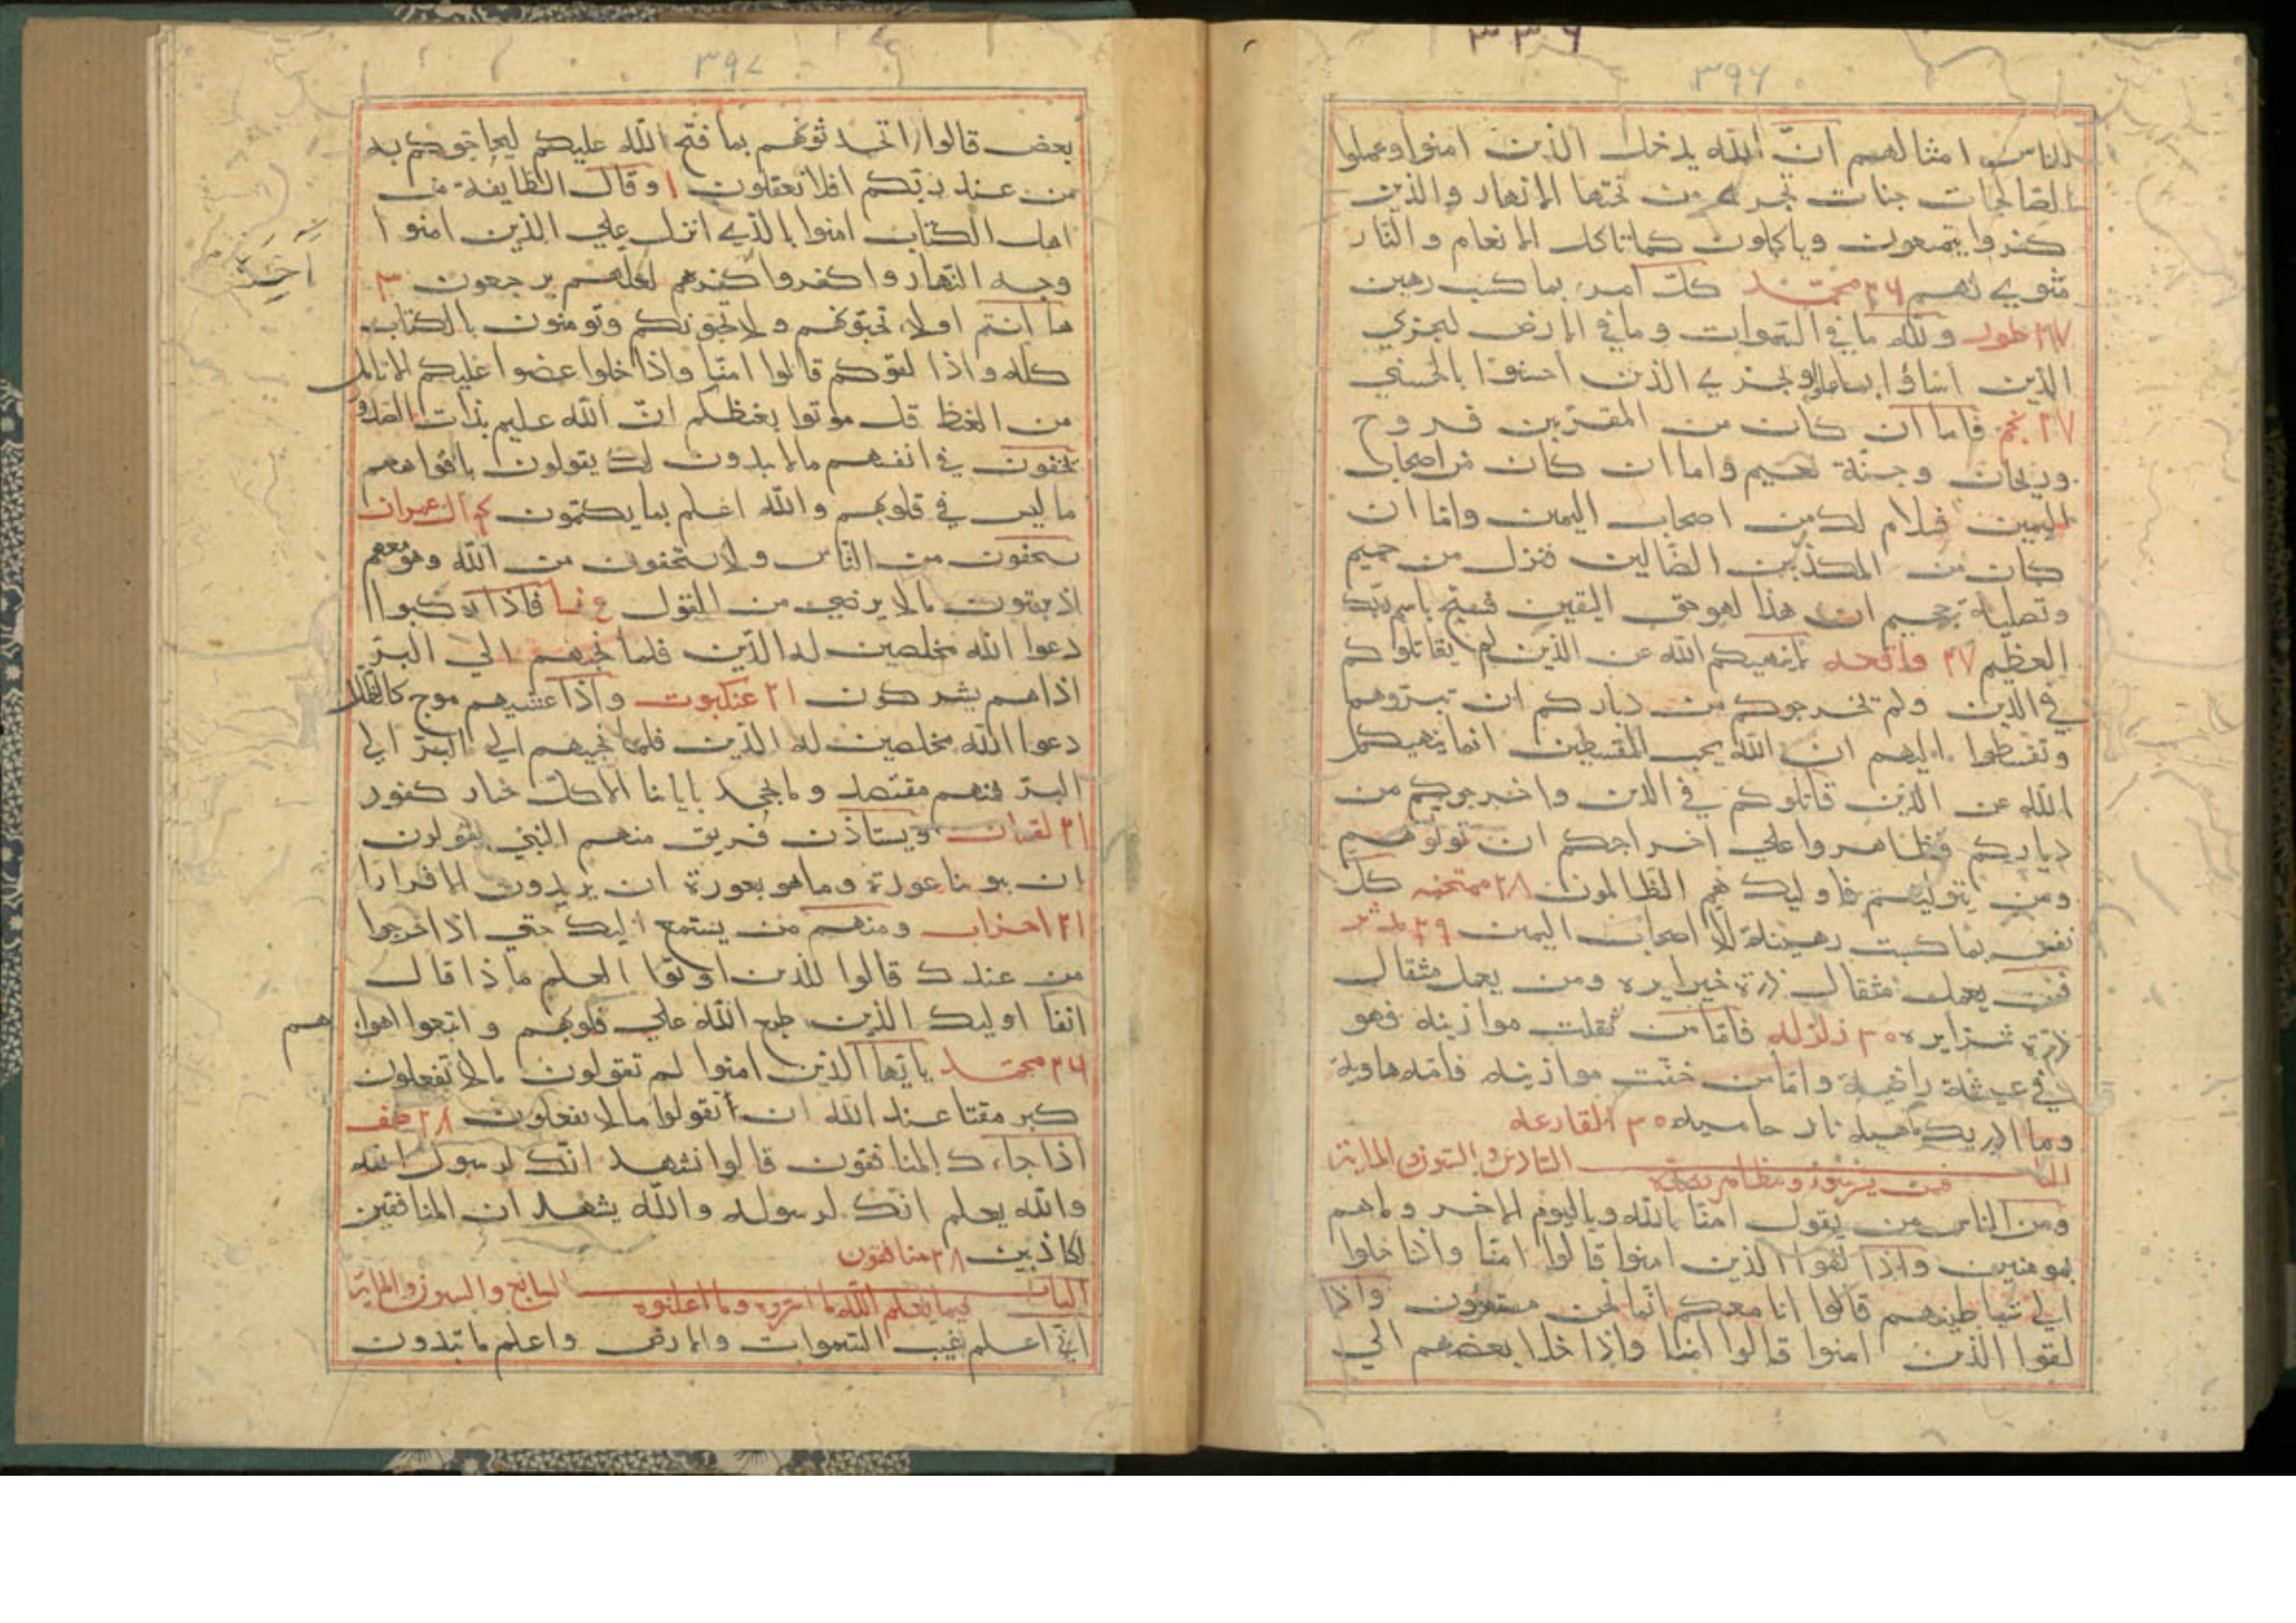 ٣٩٦
للناس امثالهم ان الله يدخل الذين امنوا وعملوا
الصالحات جنات تجري من تحتها الانهار والذين
كفروا يتمتعون وياكلون كما تاكل الانعام والنار
مثوي لهم ٢٦ محمد كل امرء بما كسب رهين
٢٧ طور ولله ما في السموات وما في الارض ليجزي
الذين اساؤا بما عملوا ويجزي الذين احسنوا بالحسني
٢٧ نجم فاما ان كان من المقربين فروح
وريحان وجنة نعيم واما ان كان من اصحاب
اليمين فسلام لك من اصحاب اليمين واما ان
كان من المكذبين الضالين فنزل من حميم
وتصلية جحيم ان هذا لهو حق اليقين فسبح باسم ربك
العظيم ٢٧ واقعه لا ينهيكم الله عن الذين لم يقاتلوكم
في الدين ولم يخرجوكم من دياركم ان تبروهم
وتقسطوا اليهم ان الله يحب المقسطين انما ينهيكم
الله عن الذين قاتلوكم في الدين واخرجوكم من
دياركم وظاهروا علي اخراجكم ان تولوهم
ومن يتوليهم فاوليك هم الظالمون ٢٨ ممتحنه كل
نفس بما كسبت رهينة الا اصحاب اليمين ٢٩ مدثر
فمن يعمل مثقال ذرة خيرا يره ومن يعمل مثقال
ذرة شرا يره ٣٠ زلزله فاما من ثقلت موازينه فهو
في عيشة راضية واما من خفت موازينه فامه هاوية
وما ادريك ماهيه نار حاميه ٣٠ القارعه
الباب السادس و الستون والماية
ومن الناس من يقول امنا بالله وباليوم الاخر وماهم
بمومنين واذا لقوا الذين امنوا قالوا امنا واذا خلوا
الي شياطينهم قالوا انا معكم انما نحن مستهزؤن واذا
لقوا الذين امنوا قالوا امنا واذا خلا بعضهم الي
٣٩٧
بعض قالوا اتحدثونهم بما فتح الله عليكم ليحاجوكم به
من عند ربكم افلا تعقلون ١ وقالت طايفة من
اهل الكتاب امنوا بالذي انزل علي الذين امنوا
وجه النهار واكفروا اخره لعلهم يرجعون ٣
ها انتم اولاء تحبونهم ولا يحبونكم وتومنون بالكتاب
كله واذا لقوكم قالوا امنا واذا خلوا عضوا عليكم الانامل
من الغيظ قل موتوا بغيظكم ان الله عليم بذات الصدور
يخفون في انفسهم مالا يبدون لك يقولون بافواههم
ما ليس في قلوبهم والله اعلم بما يكتمون ٤ ال عمران
يستخفون من الناس ولا يستخفون من الله وهو معهم
اذ يبيتون مالا يرضي من القول ٤ نسا فاذا ركبوا
دعوا الله مخلصين له الدين فلما نجيهم الي البر
اذا هم يشركون ٢١ عنكبوت واذا غشيهم موج كالظلل
دعوا الله مخلصين له الدين فلما نجيهم الي البر الي
البر فمنهم مقتصد وما يجحد باياتنا الا كل ختار كفور
٢١ لقمان ويستاذن فريق منهم النبي يقولون
ان بيوتنا عورة وما هو بعورة ان يريدون الا فرارا
٢١ احزاب ومنهم من يستمع اليك حتي اذا خرجوا
من عندك قالوا للذين اوتوا العلم ماذا قال
انفا اوليك الذين طبع الله علي قلوبهم واتبعوا اهواءهم
٢٦ محمد يا ايها الذين امنوا لم تقولون مالا تفعلون
كبر مقتا عند الله ان تقولوا مالا تفعلون ٢٨ صف
اذا جاءك المنافقون قالوا نشهد انك لرسول الله
والله يعلم انك لرسوله والله يشهد ان المنافقين
لكاذبين ٢٨ منافقون
الباب السابع والستون والماية
فيما يعلم الله ما اسروه وما اعلنوه
اني اعلم غيب السموات والارض واعلم ما تبدون